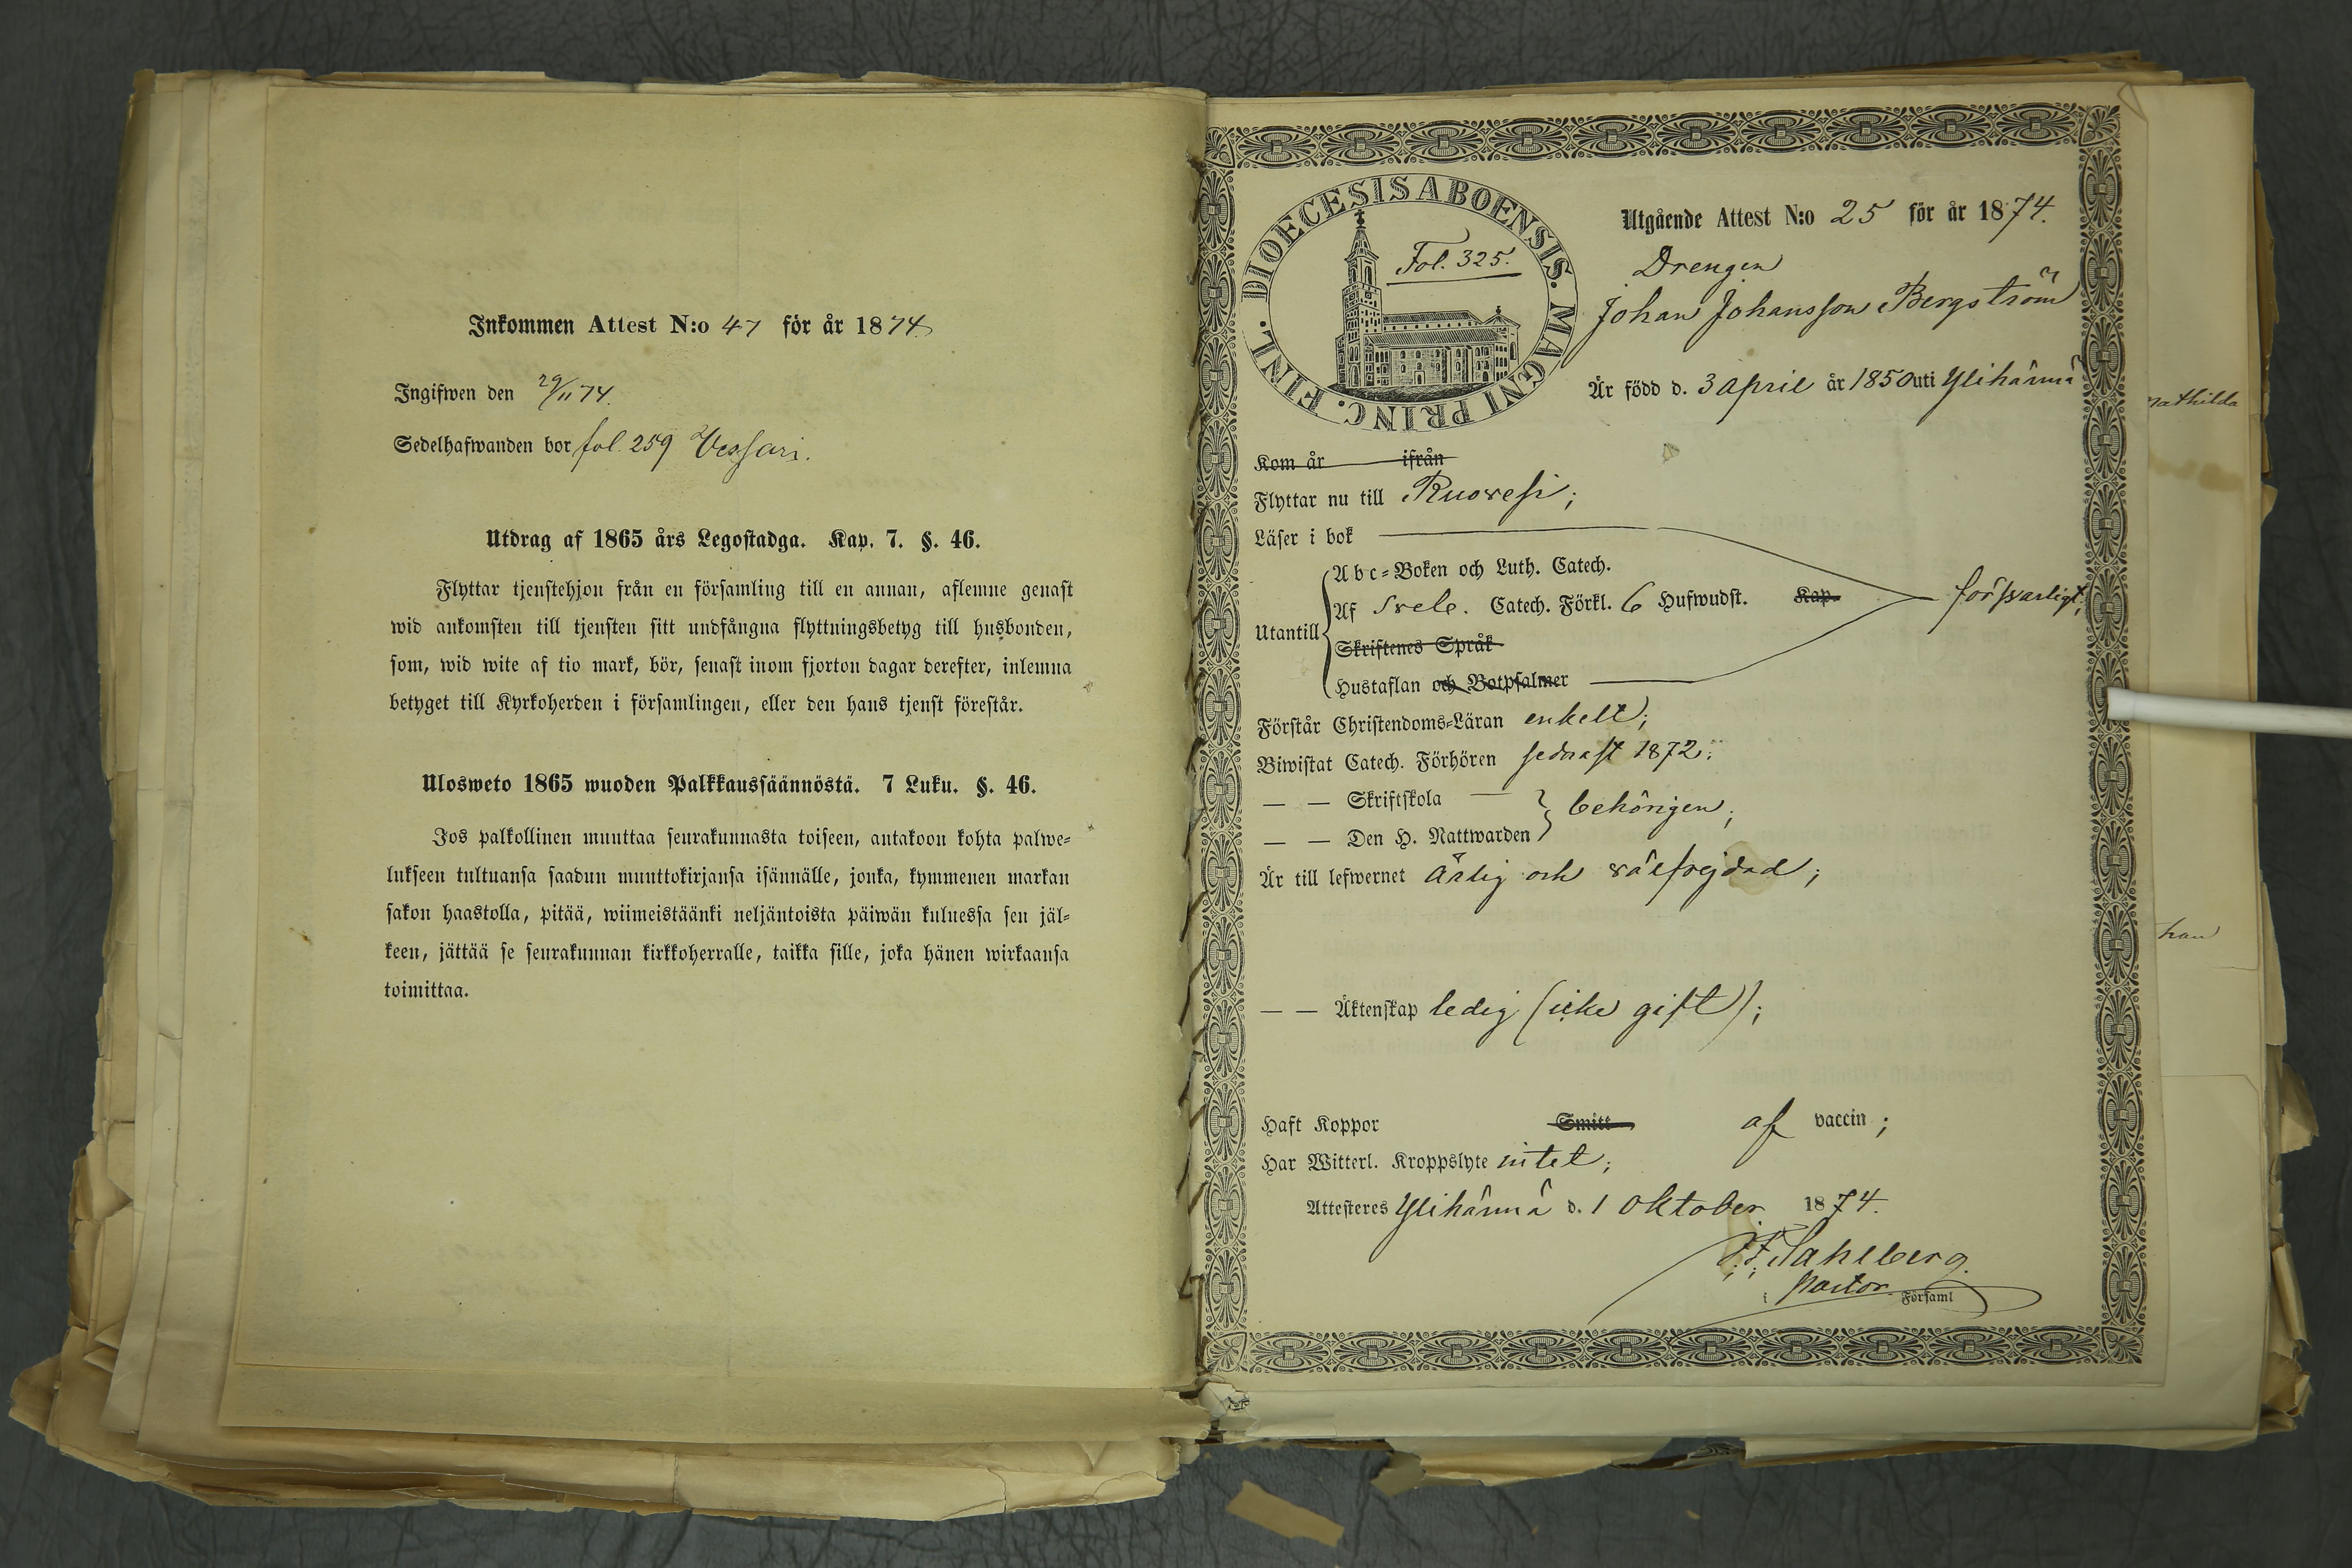 Inkommen Attest N:o 47 för år 1874.
Ingifwen den 29/11 74.
Sedelhafwanden bor fol. 259 Vessari.
Utdrag af 1865 års Legostadga. Kap. 7. §. 46.
Flyttar tjenstehjon från en församling till en annan, aflemne genast
wid ankomsten till tjensten sitt undfångna flyttningsbetyg till husbonden,
som, wid wite af tio mark, bör, senast inom fjorton dagar derefter, inlemna
betyget till Kyrkoherden i församlingen, eller den hans tjenst förestår.
Ulosweto 1865 wuoden Palkkaussäännöstä. 7 Luku. §. 46.
Jos palkollinen muuttaa seurakunnasta toiseen, antakoon kohta palwe-
lukseen tultuansa saadun muuttokirjansa isännälle, jonka, kymmenen markan
sakon haastolla, pitää, wiimeistäänki neljäntoista päiwän kuluessa sen jäl-
keen, jättää se seurakunnan kirkkoherralle, taikka sille, joka hänen wirkaansa
toimittaa.
DIOECESIS ABOENSIS. MAGNI PRINC. FINL.
Fol. 325.
Utgående Attest N:o 25 för år 1874.
Drengen
Johan Johansson Bergström
Är född d. 3 April år 1850 uti Ylihärmä
Kom år ifrån
Flyttar nu till Ruovesi;
Läser i bok
Utantill
Abc-Boken och Luth. Catech.
Af Sveb. Catech. Förkl. 6 Hufwudst. Kap.
försvarligt;
Skriftenes Språk
Hustaflan och Botpsalmer
Förstår Christendoms-Läran enkelt;
Biwistat Catech. Förhören sednast 1872;
— — Skriftskola
behörigen;
— — Den H. Nattwarden
Är till lefwernet ärlig och välfrejdad;
— — Äktenskap ledig (icke gift);
Haft Koppor Smitt af vaccin;
Har Witterl. Kroppslyte intet;
Attesteres Ylihärmä d. 1 Oktober 1874.
F. Sahlberg.
i Pastor Församl
mathilda
han